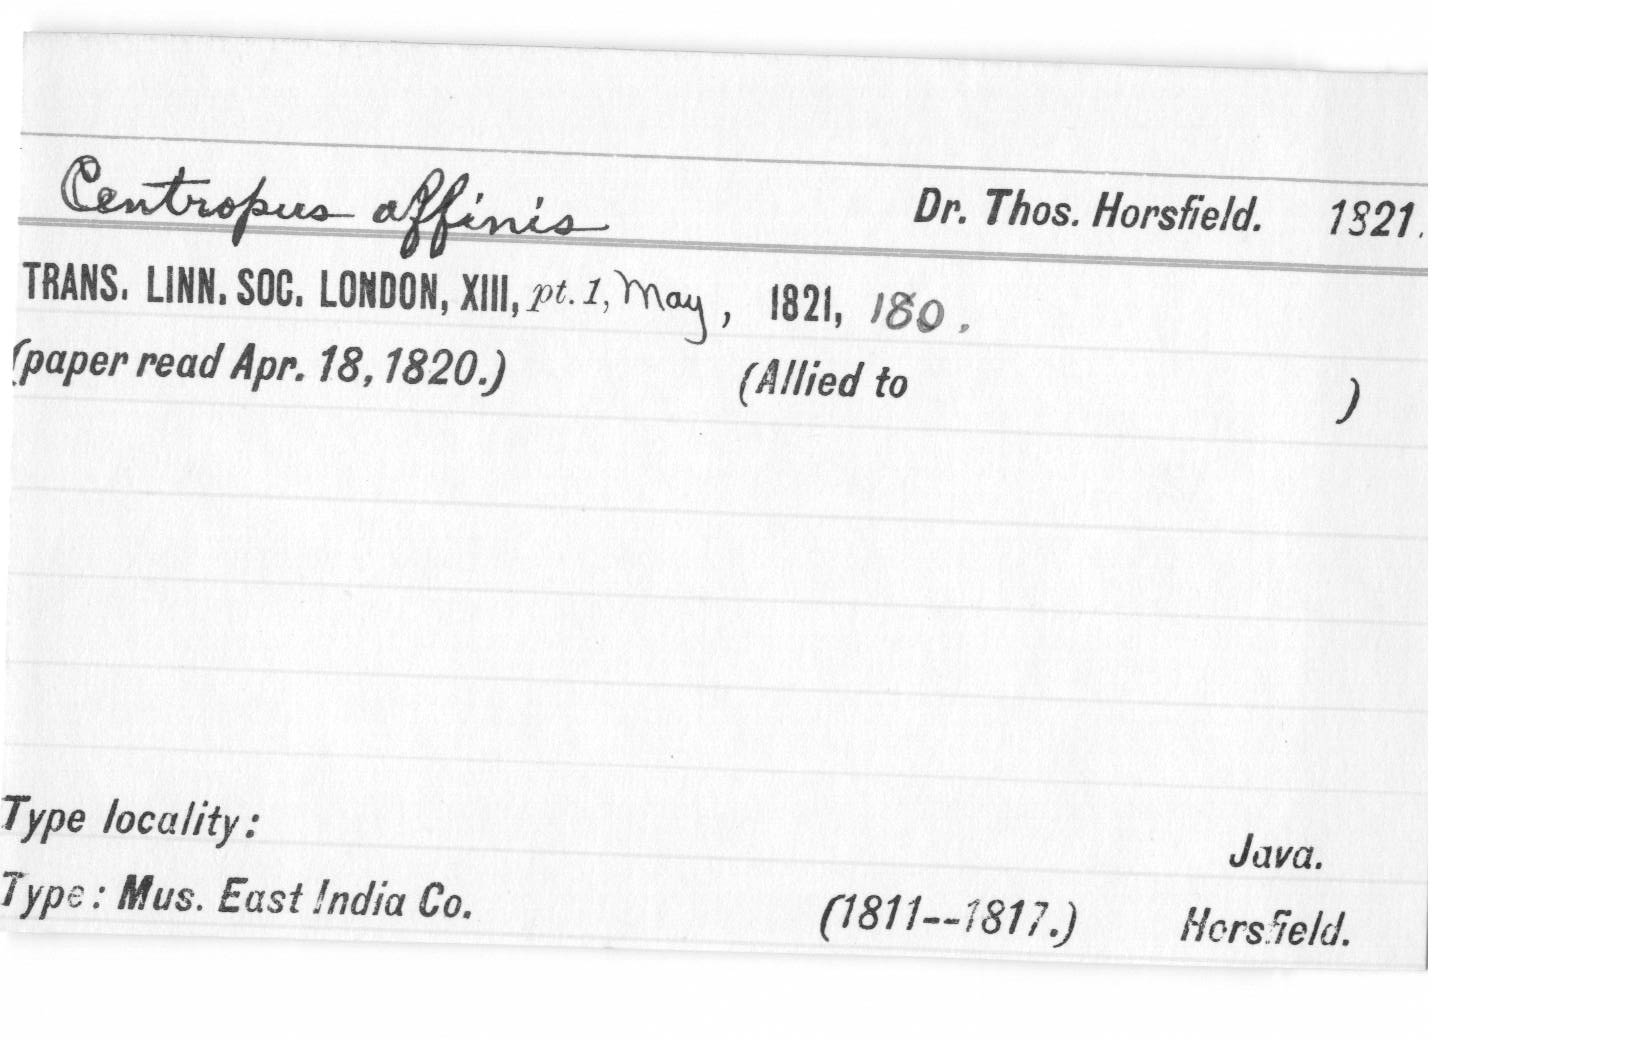 Centropus affinis Dr. Thos. Horsfield. 1821.
TRANS. LINN. SOC. LONDON, XIII, pt. 1, May, 1821, 180.
(paper read Apr. 18, 1820.) (Allied to )
Type locality: Java.
Type: Mus. East India Co. (1811--1817.) Horsfield.